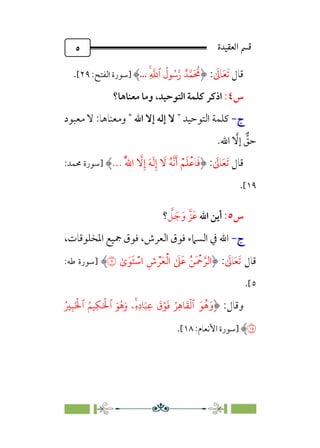 قسم العقيدة ٥
قال تَعَالَىٰ: ﴿مُّحَمَّدٌ رَّسُولُ ٱللَّهِۚ ...﴾ [سورة الفتح: ٢٩].
س٤: اذكر كلمة التوحيد، وما معناها؟
ج- كلمة التوحيد " لا إله إلا الله " ومعناها: لا معبود
حقٌّ إلَّا الله.
قال تَعَالَىٰ: ﴿فَٱعْلَمْ أَنَّهُۥ لَآ إِلَٰهَ إِلَّا ٱللَّهُ ...﴾ [سورة محمد:
١٩].
س٥: أين الله عَزَّ وَجَلَّ؟
ج- الله في السماء فوق العرش، فوق جميع المخلوقات،
قال تَعَالَىٰ: ﴿ٱلرَّحْمَٰنُ عَلَى ٱلْعَرْشِ ٱسْتَوَىٰ ٥﴾ [سورة طه:
٥].
وقال: ﴿وَهُوَ ٱلْقَاهِرُ فَوْقَ عِبَادِهِۦۚ وَهُوَ ٱلْحَكِيمُ ٱلْخَبِيرُ
١٨﴾ [سورة الأنعام: ١٨].